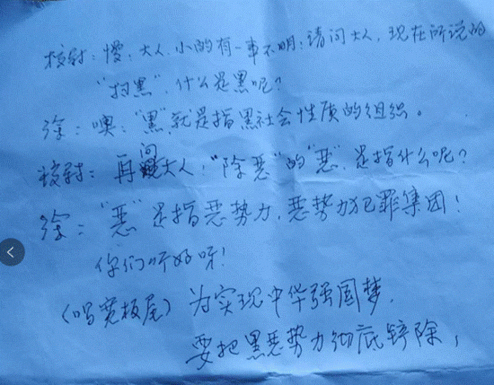 校尉：慢，大人，小的有一事不明，请问大人，现在所说的
“扫黑”，什么是黑呢？
徐：噢：“黑”就是指黑社会性质的组织。
校尉：再问大人：“除恶”的“恶”，是指什么呢？
徐：“恶”是指恶势力，恶势力犯罪集团！
你们听好呀！
（唱宽板尾）为实现中华强国梦，
要把黑恶势力彻底铲除，